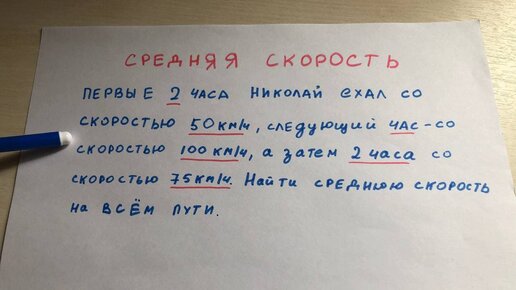 СРЕДНЯЯ СКОРОСТЬ
ПЕРВЫЕ 2 ЧАСА НИКОЛАЙ ЕХАЛ СО
СКОРОСТЬЮ 50 КМ/Ч, СЛЕДУЮЩИЙ ЧАС - СО
СКОРОСТЬЮ 100 КМ/Ч, А ЗАТЕМ 2 ЧАСА СО
СКОРОСТЬЮ 75 КМ/Ч. НАЙТИ СРЕДНЮЮ СКОРОСТЬ
НА ВСЁМ ПУТИ.